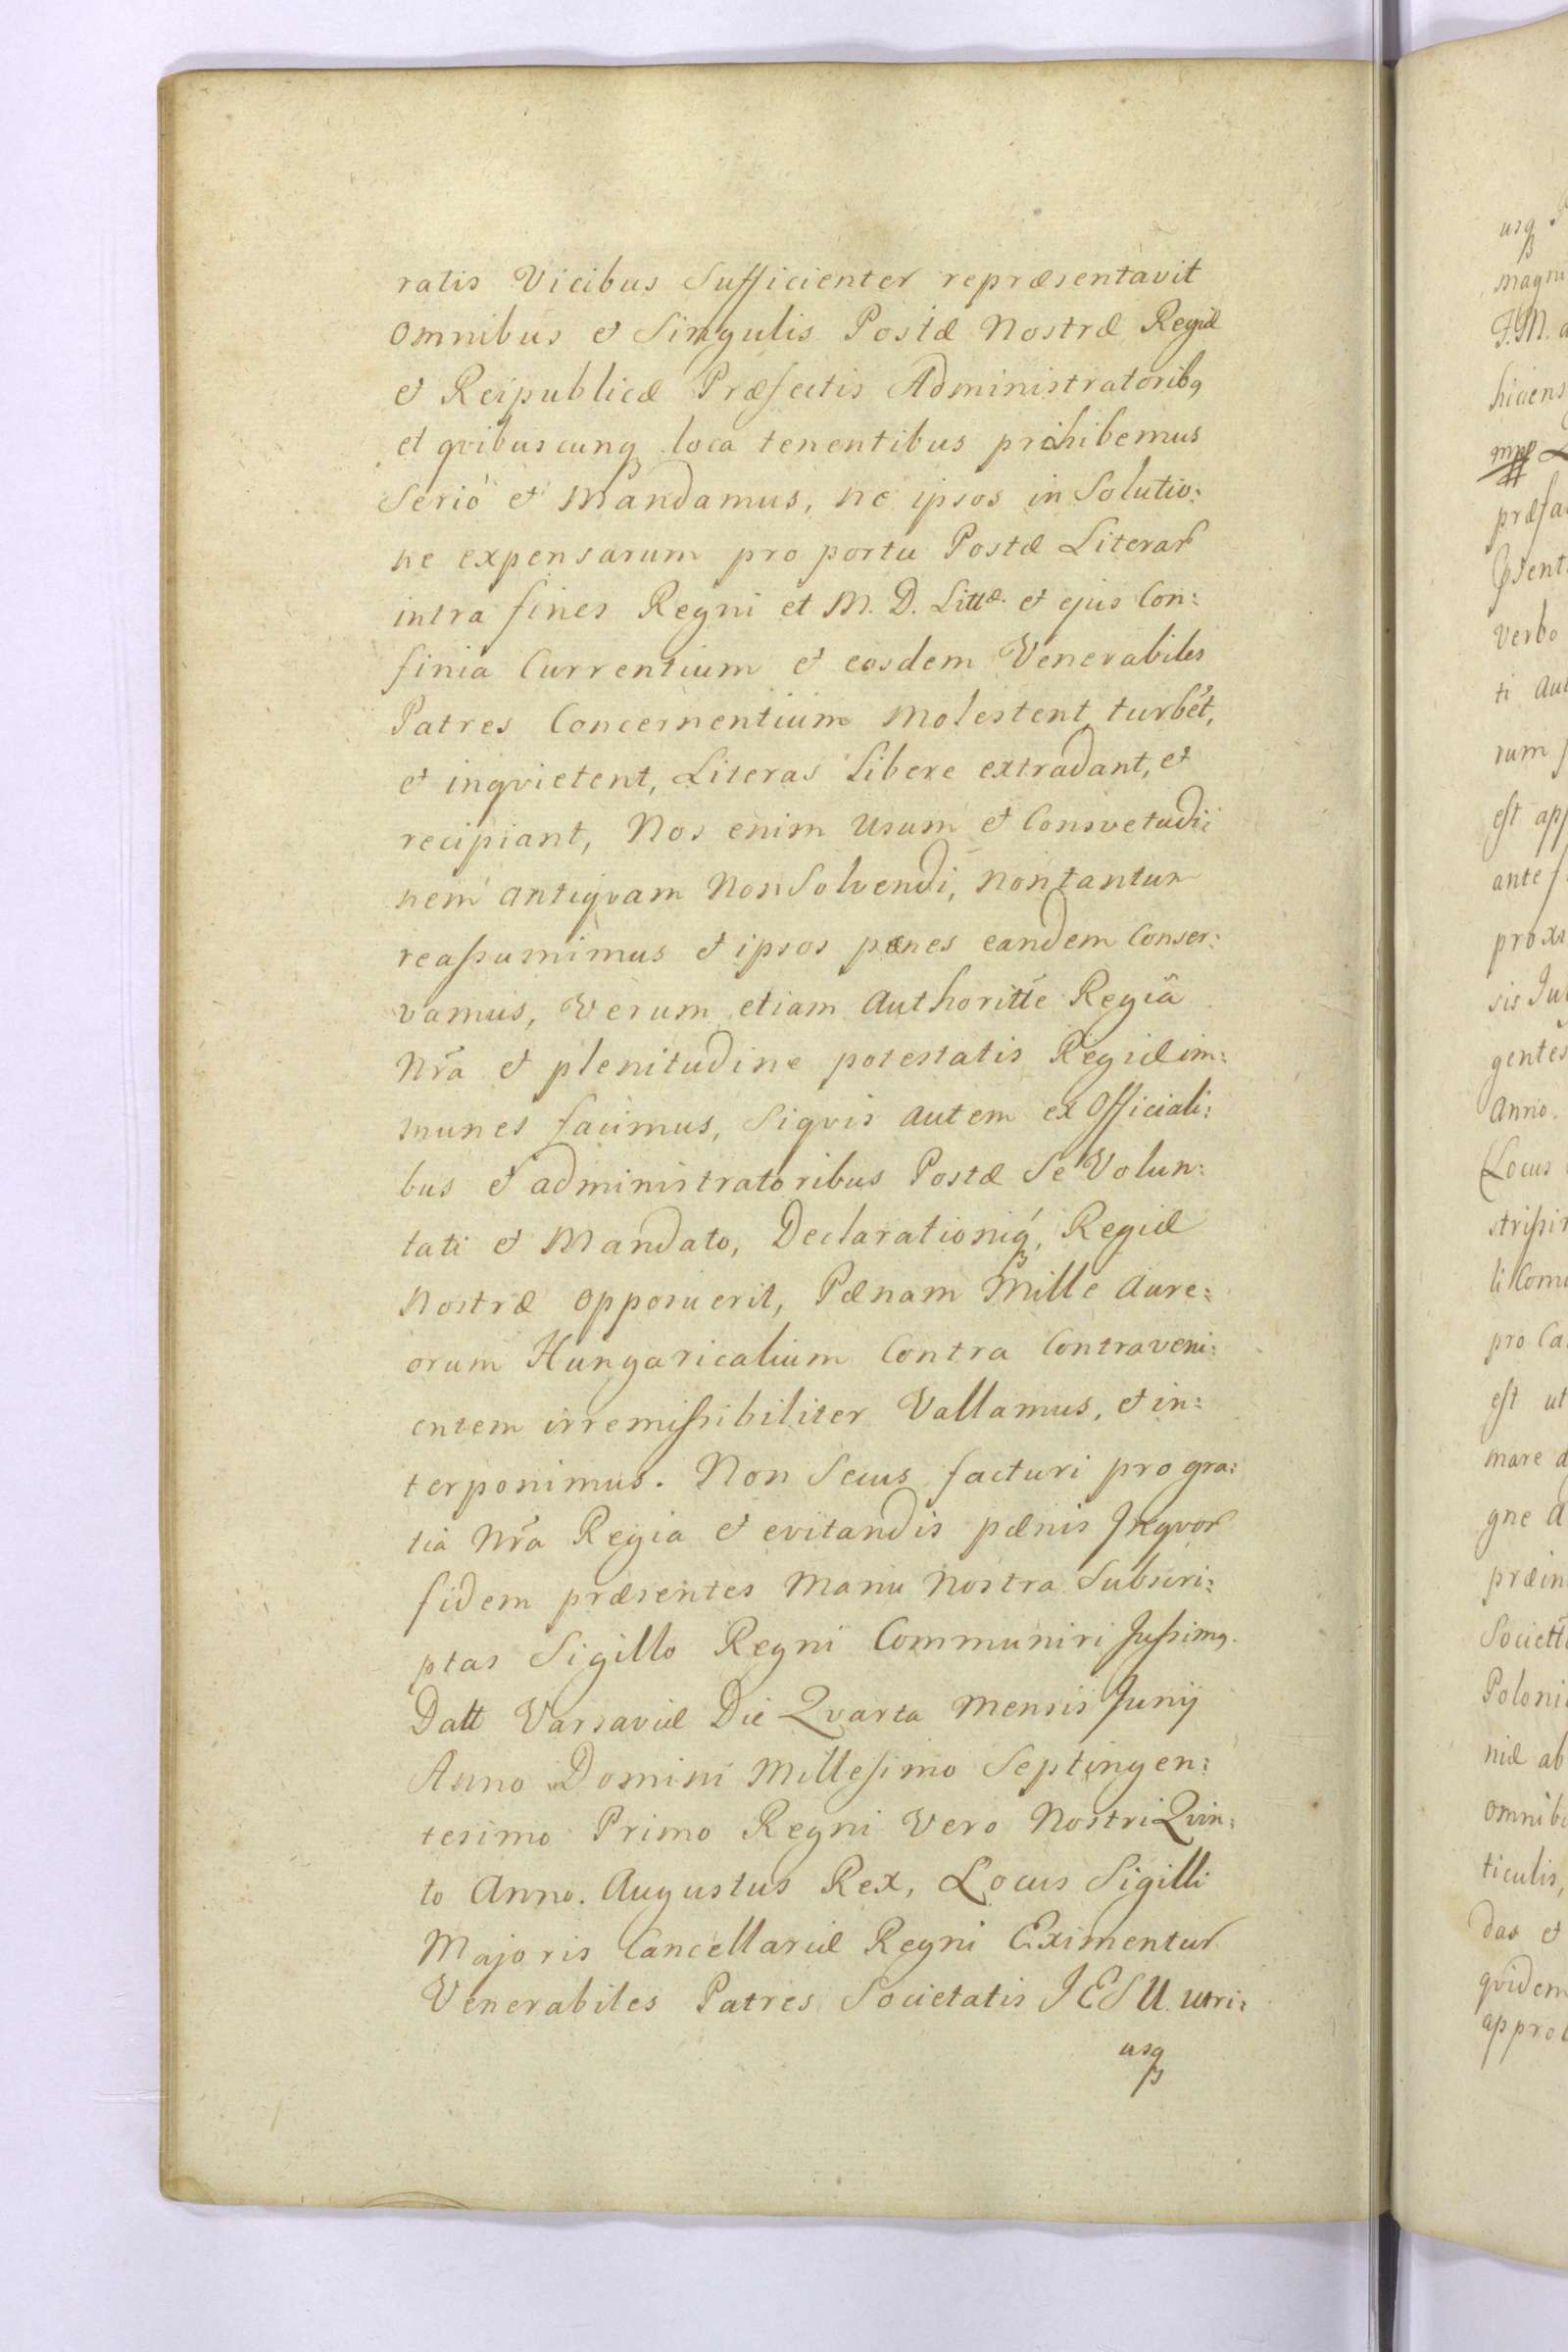 ratis Vicibus Sufficienter repræsentavit
Omnibus et Singulis Postæ Nostræ Regiæ
et Reipublicæ Præfectis Administratoribq
et qvibuscunq loca tenentibus prohibemus
Serió et Mandamus, ne ipsos in Solutio:
ne expensarum pro portu Postæ Literar
intra fines Regni et M. D. Littæ. et ejus Con:
finia Currentium et eosdem Venerabiles
Patres Concernentium Molestent turbēt,
et inqvietent, Literas Libere extradant, et
recipiant, Nos enim Usum et Consvetudi:
nem antiqvam Non Solvendi, non tantum
reassumimus et ipsos pænes eandem Conser:
vamus, Verum etiam Authoritte Regiâ
Nrã et plenitudine potestatis Regiæ im:
munes facimus, Siqvis autem ex Officiali:
bus et administratoribus Postæ Se Volun:
tati et Mandato, Declarationiq, Regiæ
Nostræ opposuerit, Pænam Mille Aure:
orum Hungaricalium Contra Contraveni:
entem irremissibiliter Vallamus, et in:
terponimus. Non Secus facturi pro gra:
tia Nrã Regia et evitandis pænis Inqvor
fidem præsentes Manu Nostra Subscri:
ptas Sigillo Regni Communiri Jussimq.
Datt Varsaviæ Die Qvarta Mensis Junij
Anno Domini Millesimo Septingen:
tesimo Primo Regni Vero Nostri Qvin:
to Anno. Augustus Rex, Locus Sigilli
Majoris Cancellariæ Regni Eximentur
Venerabiles Patres Societatis JESU. utri:
usq
usq
magni
F. M.
hiciens
præfa
verbo
ti au
rum
est ap
ante
proxi
sis Ju
gentes
Anno.
(Locus
strissi
li Com
pro Ca
est ut
mare
gne
præin
Societt
Poloni
niæ ab
omnib
ticulis,
das et
qvidem
appro